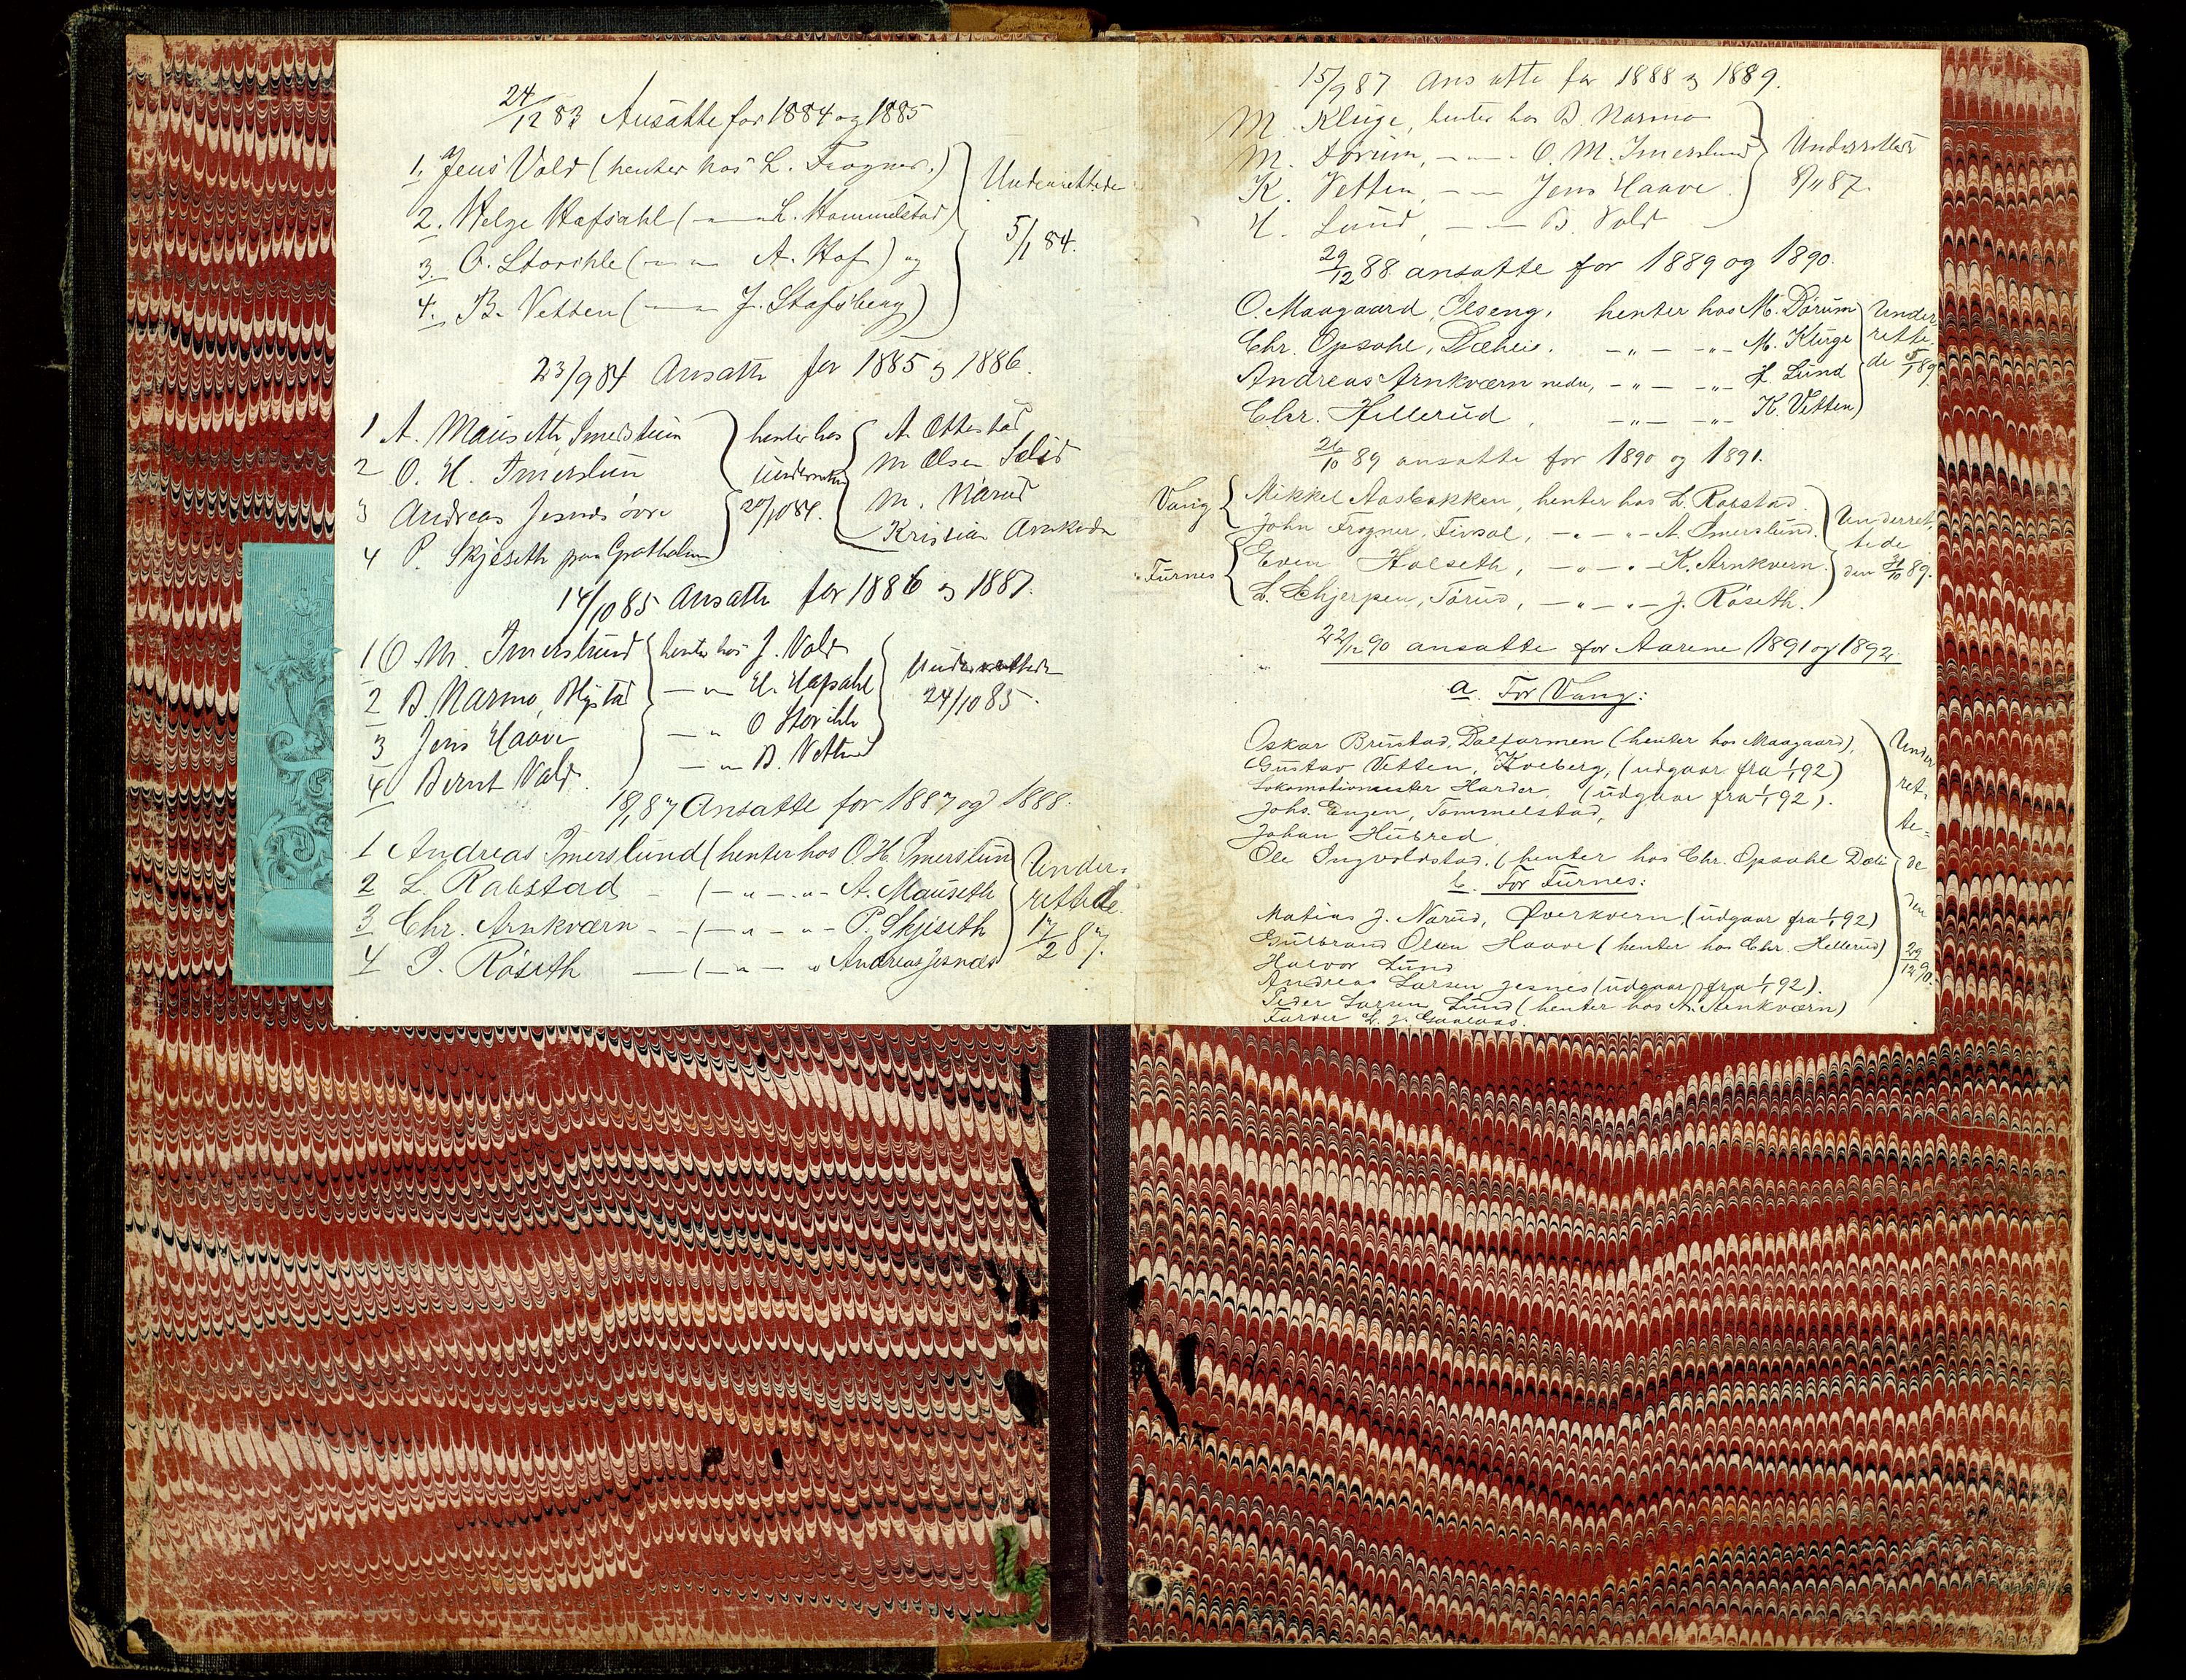 24/12 83 Ansatte for 1884 og 1885
1. Jens Vold (henter hos L. Frogner.)
2. Helge Hafsahl ( — „ — L. Hommelstad)
3. O. Storihle ( — „ — A. Hof ) og
4. B. Vetten ( — „ — J. Stafsberg)
Underrettede
5/1 84.
23/9 84 Ansatte for 1885 og 1886.
1 A. Mauseth Imerslun
2 O. H. Imerslun
3 Andreas Jesnes øvre
4 P. Skjeseth paa Grøtholm
henter hos
Underrettede
20/10 84.
A. Ottestad
M Olsen
M. Narud
Kristian Arnkvern
14/10 85 Ansatte for 1886 og 1887.
1 O. M. Imerslund henter hos J. Vold
2 B. Narmo, — „ — H. Hafsahl
3 Jens Haave — „ O Storihle
4 Bernt Vold — „ B. Vetten
Underrettede
24/10 85.
18/1 87 Ansatte for 1887 og 1888.
1 Andreas Imerslund (henter hos O. H. Imerslun
2 L. Rabstad - ( — „ — „ - A. Mauseth
3 Chr. Arnkværn - - ( — „ — „ - P. Skjeseth
4 J. Røseth — ( — „ — „ Andreas Jesnæs
Under-
rettede
17/2 87.
15/9 87 Ansatte for 1888 og 1889.
M. Kluge, henter hos B. Narmo
M. Dørum, — „ — O. M. Imerslund
K. Vetten, — — Jens Haave
H. Lund, — — B. Vold
Underrettede
8/11 87.
29/12 88 ansatte for 1889 og 1890.
O. Maagaard, Ilseng, henter hos M. Dørum
Chr. Opsahl, Dæhlie, — „ — „ — M. Kluge
Andreas Arnkværn nedre, — „ — „ — H. Lund
Chr. Hillerud, — „ — „ — K. Vetten
Under-
rette-
de 5/1 89.
26/10 89 ansatte for 1890 og 1891.
Vang
Mikkel Aasbakken, henter hos L. Rabstad.
John Frogner, Finsal, — „ — „ — A. Imerslund.
Furnes
Even Holseth, — „ — „ — K. Arnkvern.
L. Schjerpen, Torud, — „ — „ — J. Røseth.
Underret-
tede
den 31/10 89.
22/12 90 ansatte for Aarene 1891 og 1892.
a. For Vang:
Oskar Brustad, Dalfarmen (henter hos Maagaard),
Gustav Vetten, Kveberg, (udgaar fra 1/1 92)
Lokomotivmester Harder, (udgaar fra 1/1 92).
Johs. Engen, Tommelstad,
Johan Hubred
Ole Ingvoldstad, (henter hos Chr. Opsahl Dæli
b. For Furnes:
Matias J. Narud, Øverkvern, (udgaar fra 1/1 92)
Gulbrand Olsen Haave (henter hos Chr. Hellerud)
Halvor Lund
Andreas Larsen Jesnes (udgaar fra 1/1 92).
Peder Larsen Lund (henter hos A. Arnkværn)
Farver L. J. Gaalaas.
Under
ret-
te-
de
den
29/12 90.